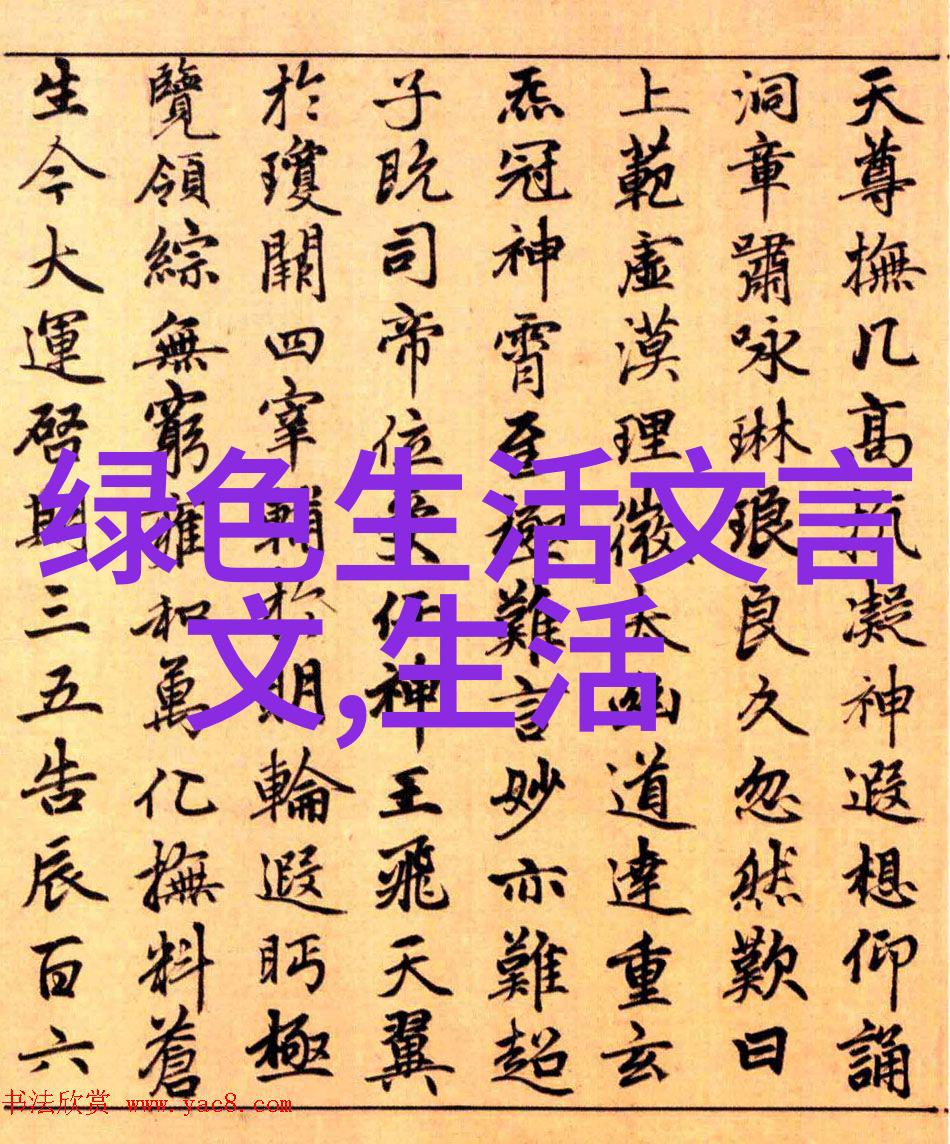 天尊撫几高抗凝神遐想仰誦
洞章嘯咏琳琅良久忽然歎曰
上範虛漠理微太幽道達重玄
炁冠神霄至極難言妙亦難超
子既司帝位受任神王飛天翼
於瓊闕四宰輔於明輪遐眄極
覽領綜無窮雍和萬化撫料蒼
生今大運啓期三五告辰百六
绿色生活文言
文,生活
书法欣赏 www.yac8.com